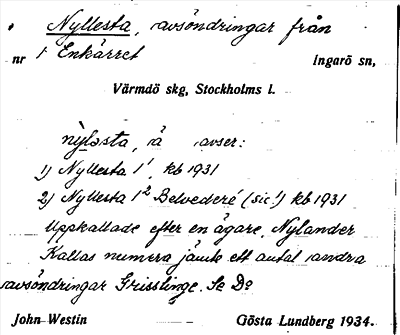 Nyllesta, avsöndringar från
nr 1 Enkärret Ingarö sn,
Värmdö skg, Stockholms l.
nỳlǝsta, å avser:
1) Nyllesta 1¹, kb 1931
2) Nyllesta 1² Belvederé (sic!) kb 1931
Uppkallade efter en ägare, Nylander
Kallas numera jämte ett antal andra
avsöndringar Grisslinge. Se Do
John Westin Gösta Lundberg 1934.